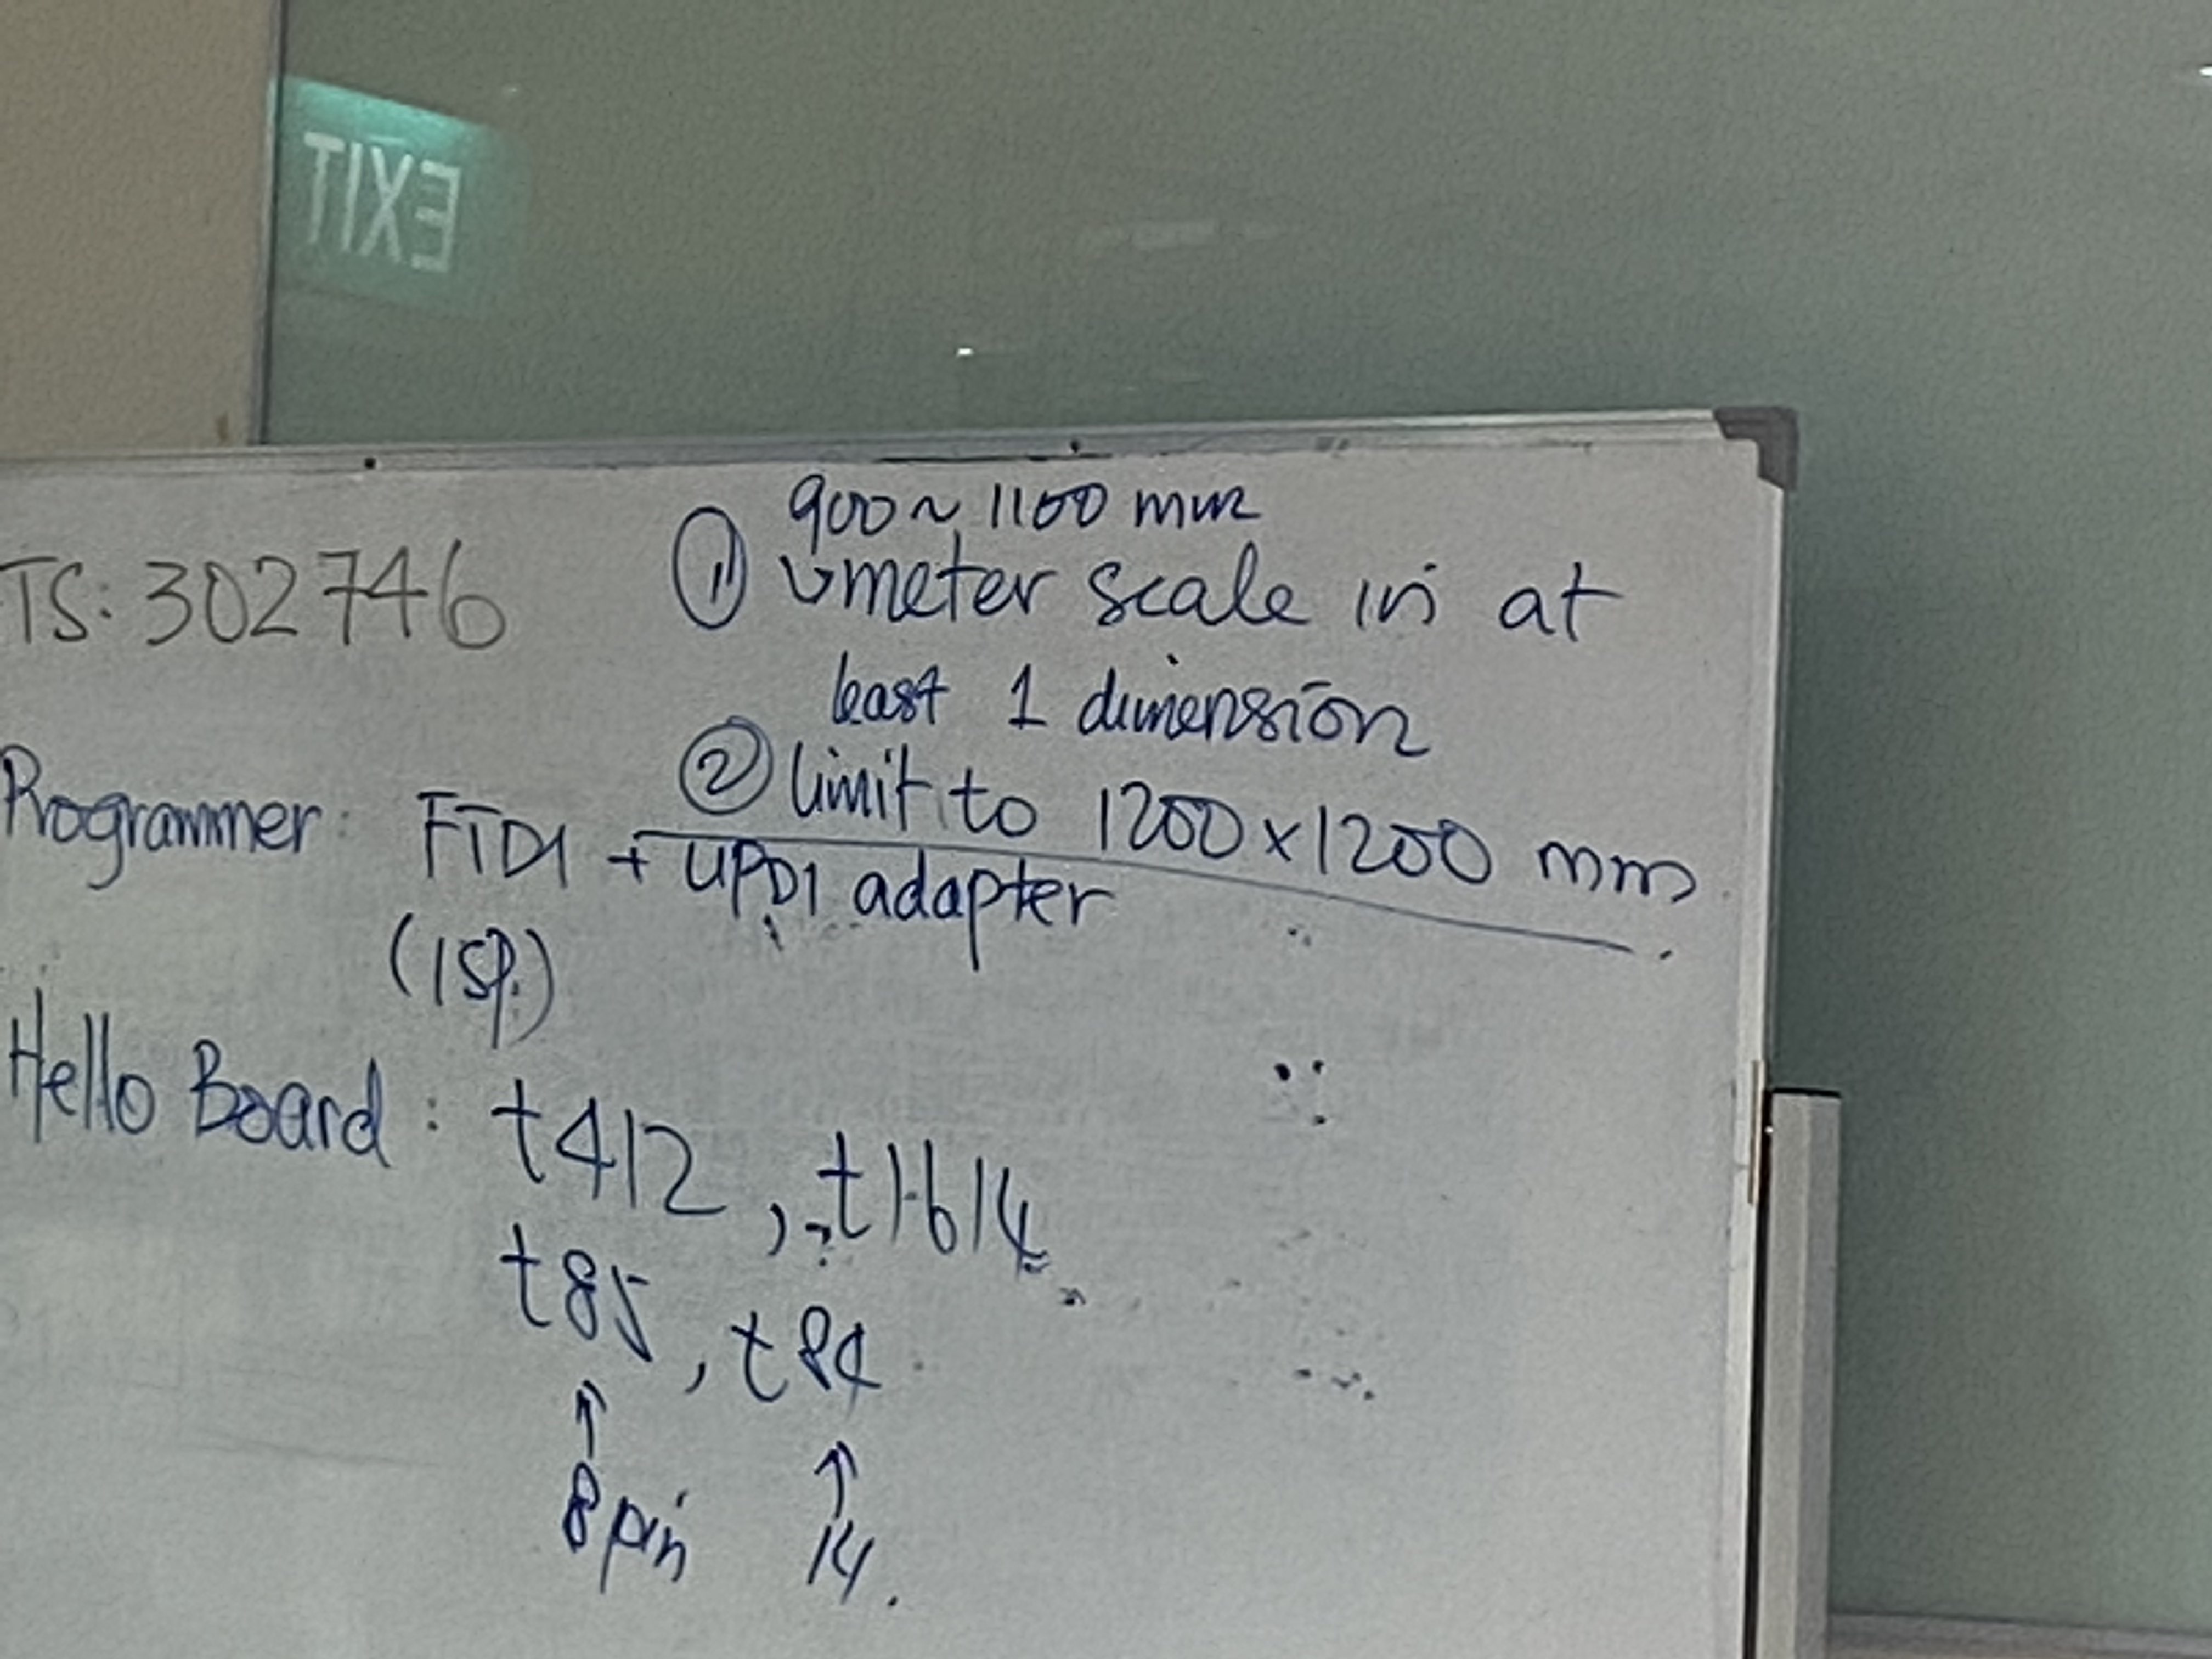 EXIT
TS: 302746
900 ~ 1100 mm
① meter scale in at
least 1 dimension
② limit to 1200 x 1200 mm
Programmer: FTDI + UPDI adapter
(ISP)
Hello Board: t412, t1614
t85, t84
↑ ↑
8 pin 14.